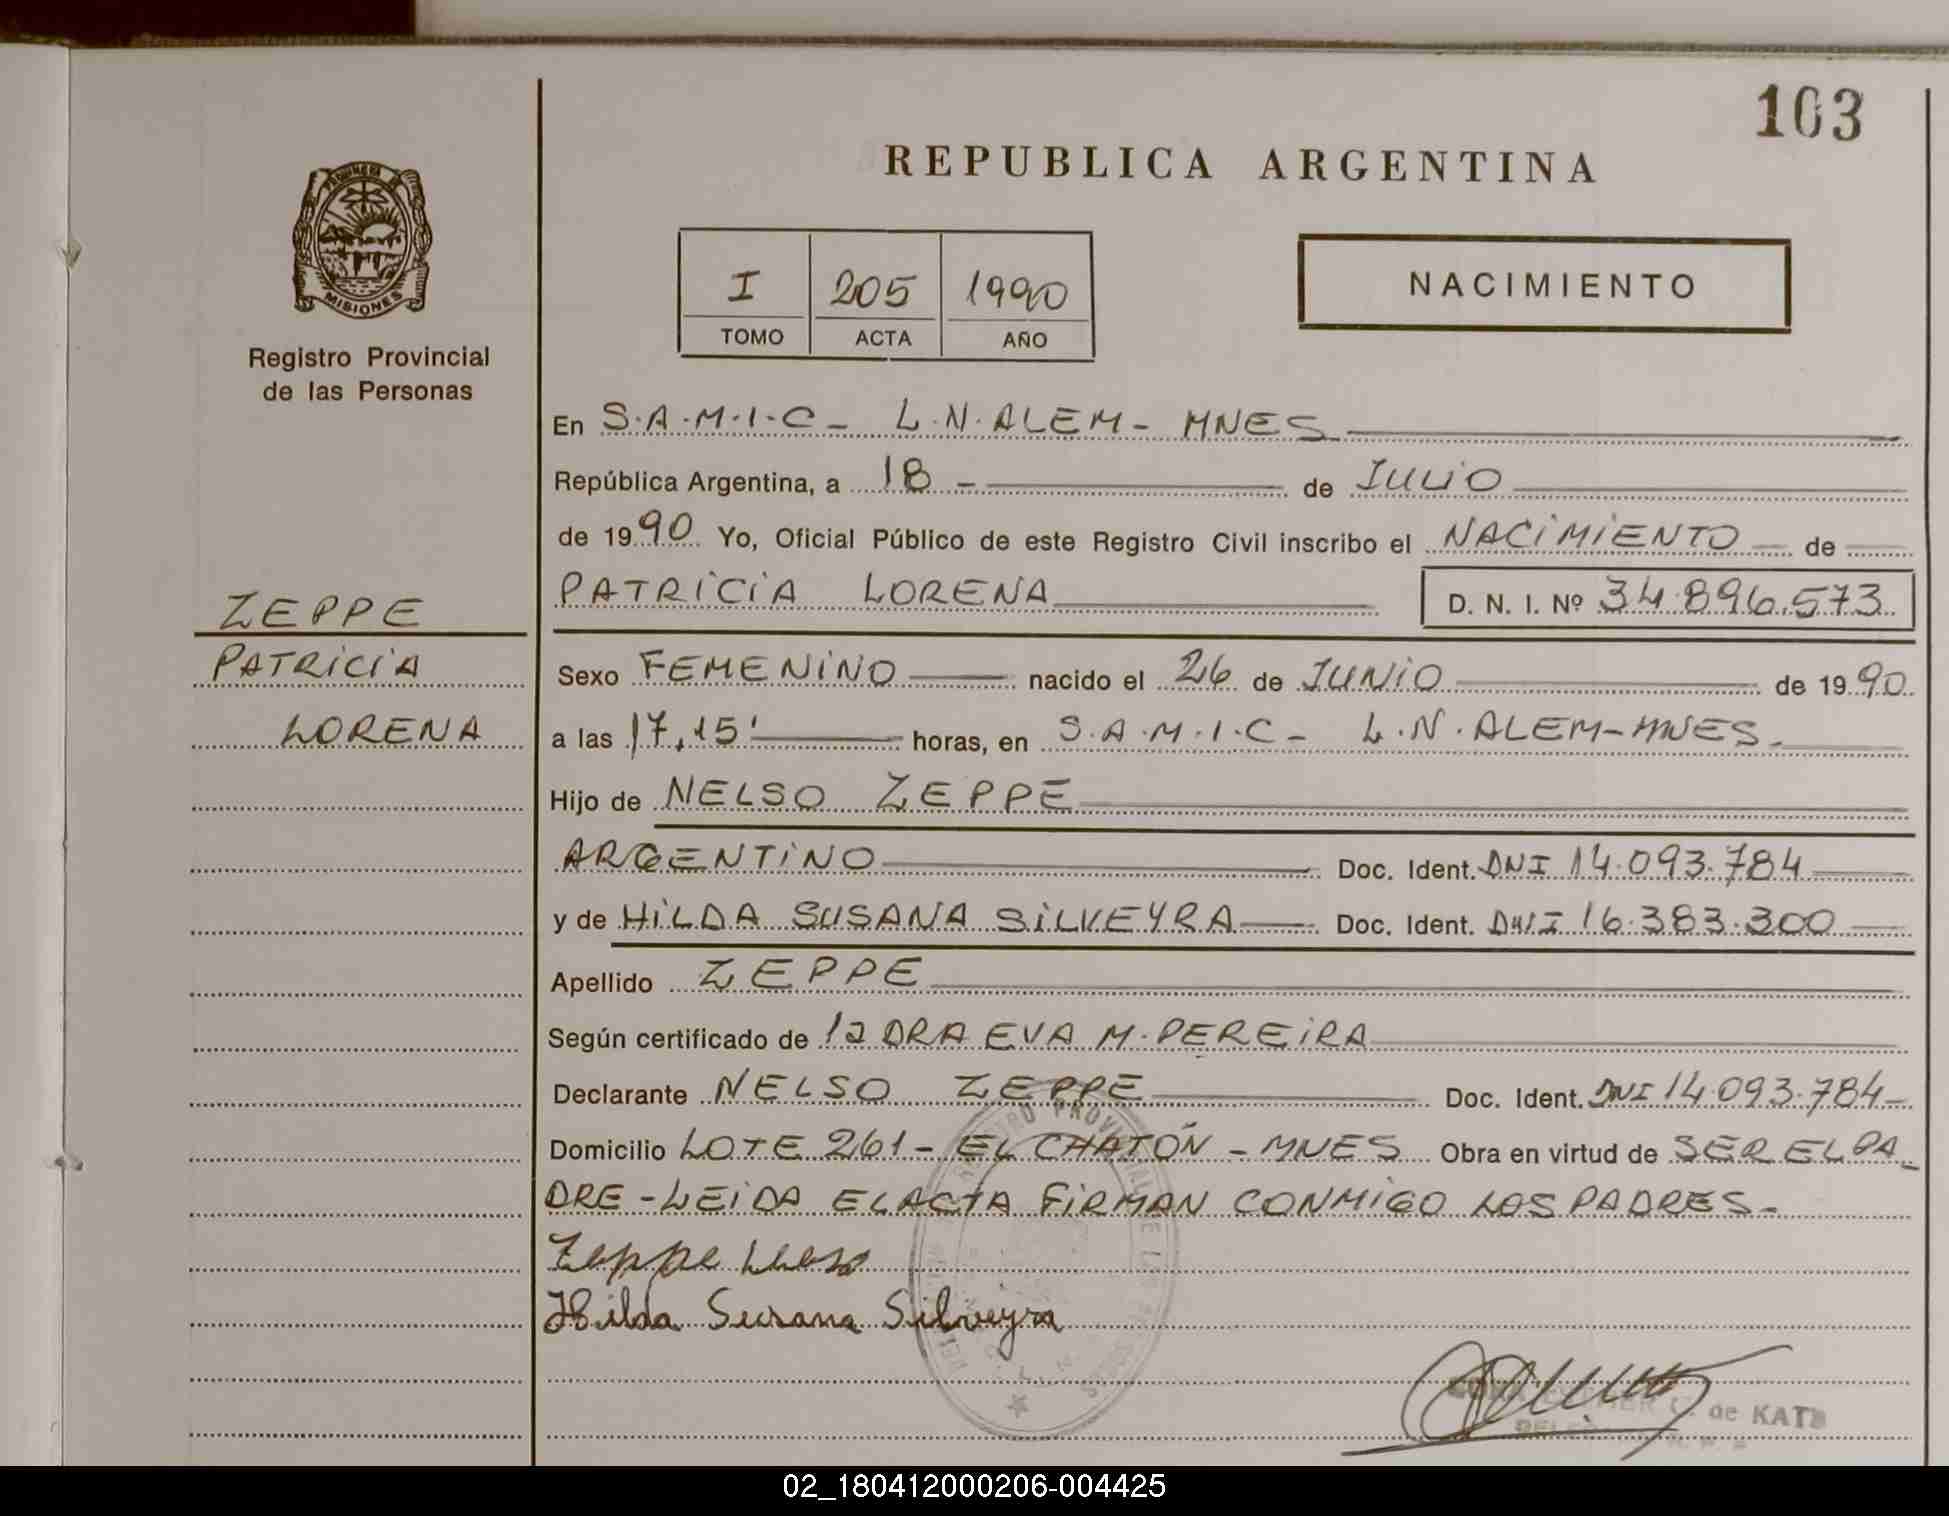 103
REPUBLICA ARGENTINA
PROVINCIA DE
MISIONES
Registro Provincial
de las Personas
I 205 1990
TOMO ACTA AÑO
NACIMIENTO
En S.A.M.I.C - L.N.ALEM - MNES
República Argentina, a 18 - de JULIO
de 1990 Yo, Oficial Público de este Registro Civil inscribo el NACIMIENTO de
PATRICIA LORENA D. N. I. Nº 34.896.573
ZEPPE
PATRICIA
LORENA
Sexo FEMENINO nacido el 26 de JUNIO de 1990
a las 17,15' horas, en S.A.M.I.C - L.N.ALEM-MNES.
Hijo de NELSO ZEPPE
ARGENTINO Doc. Ident. DNI 14.093.784
y de HILDA SUSANA SILVEYRA Doc. Ident. DNI 16.383.300
Apellido ZEPPE
Según certificado de la DRA EVA M. PEREIRA
Declarante NELSO ZEPPE Doc. Ident. DNI 14.093.784-
Domicilio LOTE 261 - EL CHATÓN - MNES Obra en virtud de SER EL PA-
DRE - LEIDA EL ACTA FIRMAN CONMIGO LOS PADRES.-
Zeppe
Hilda Susana Silveyra
de KATZ
02_180412000206-004425